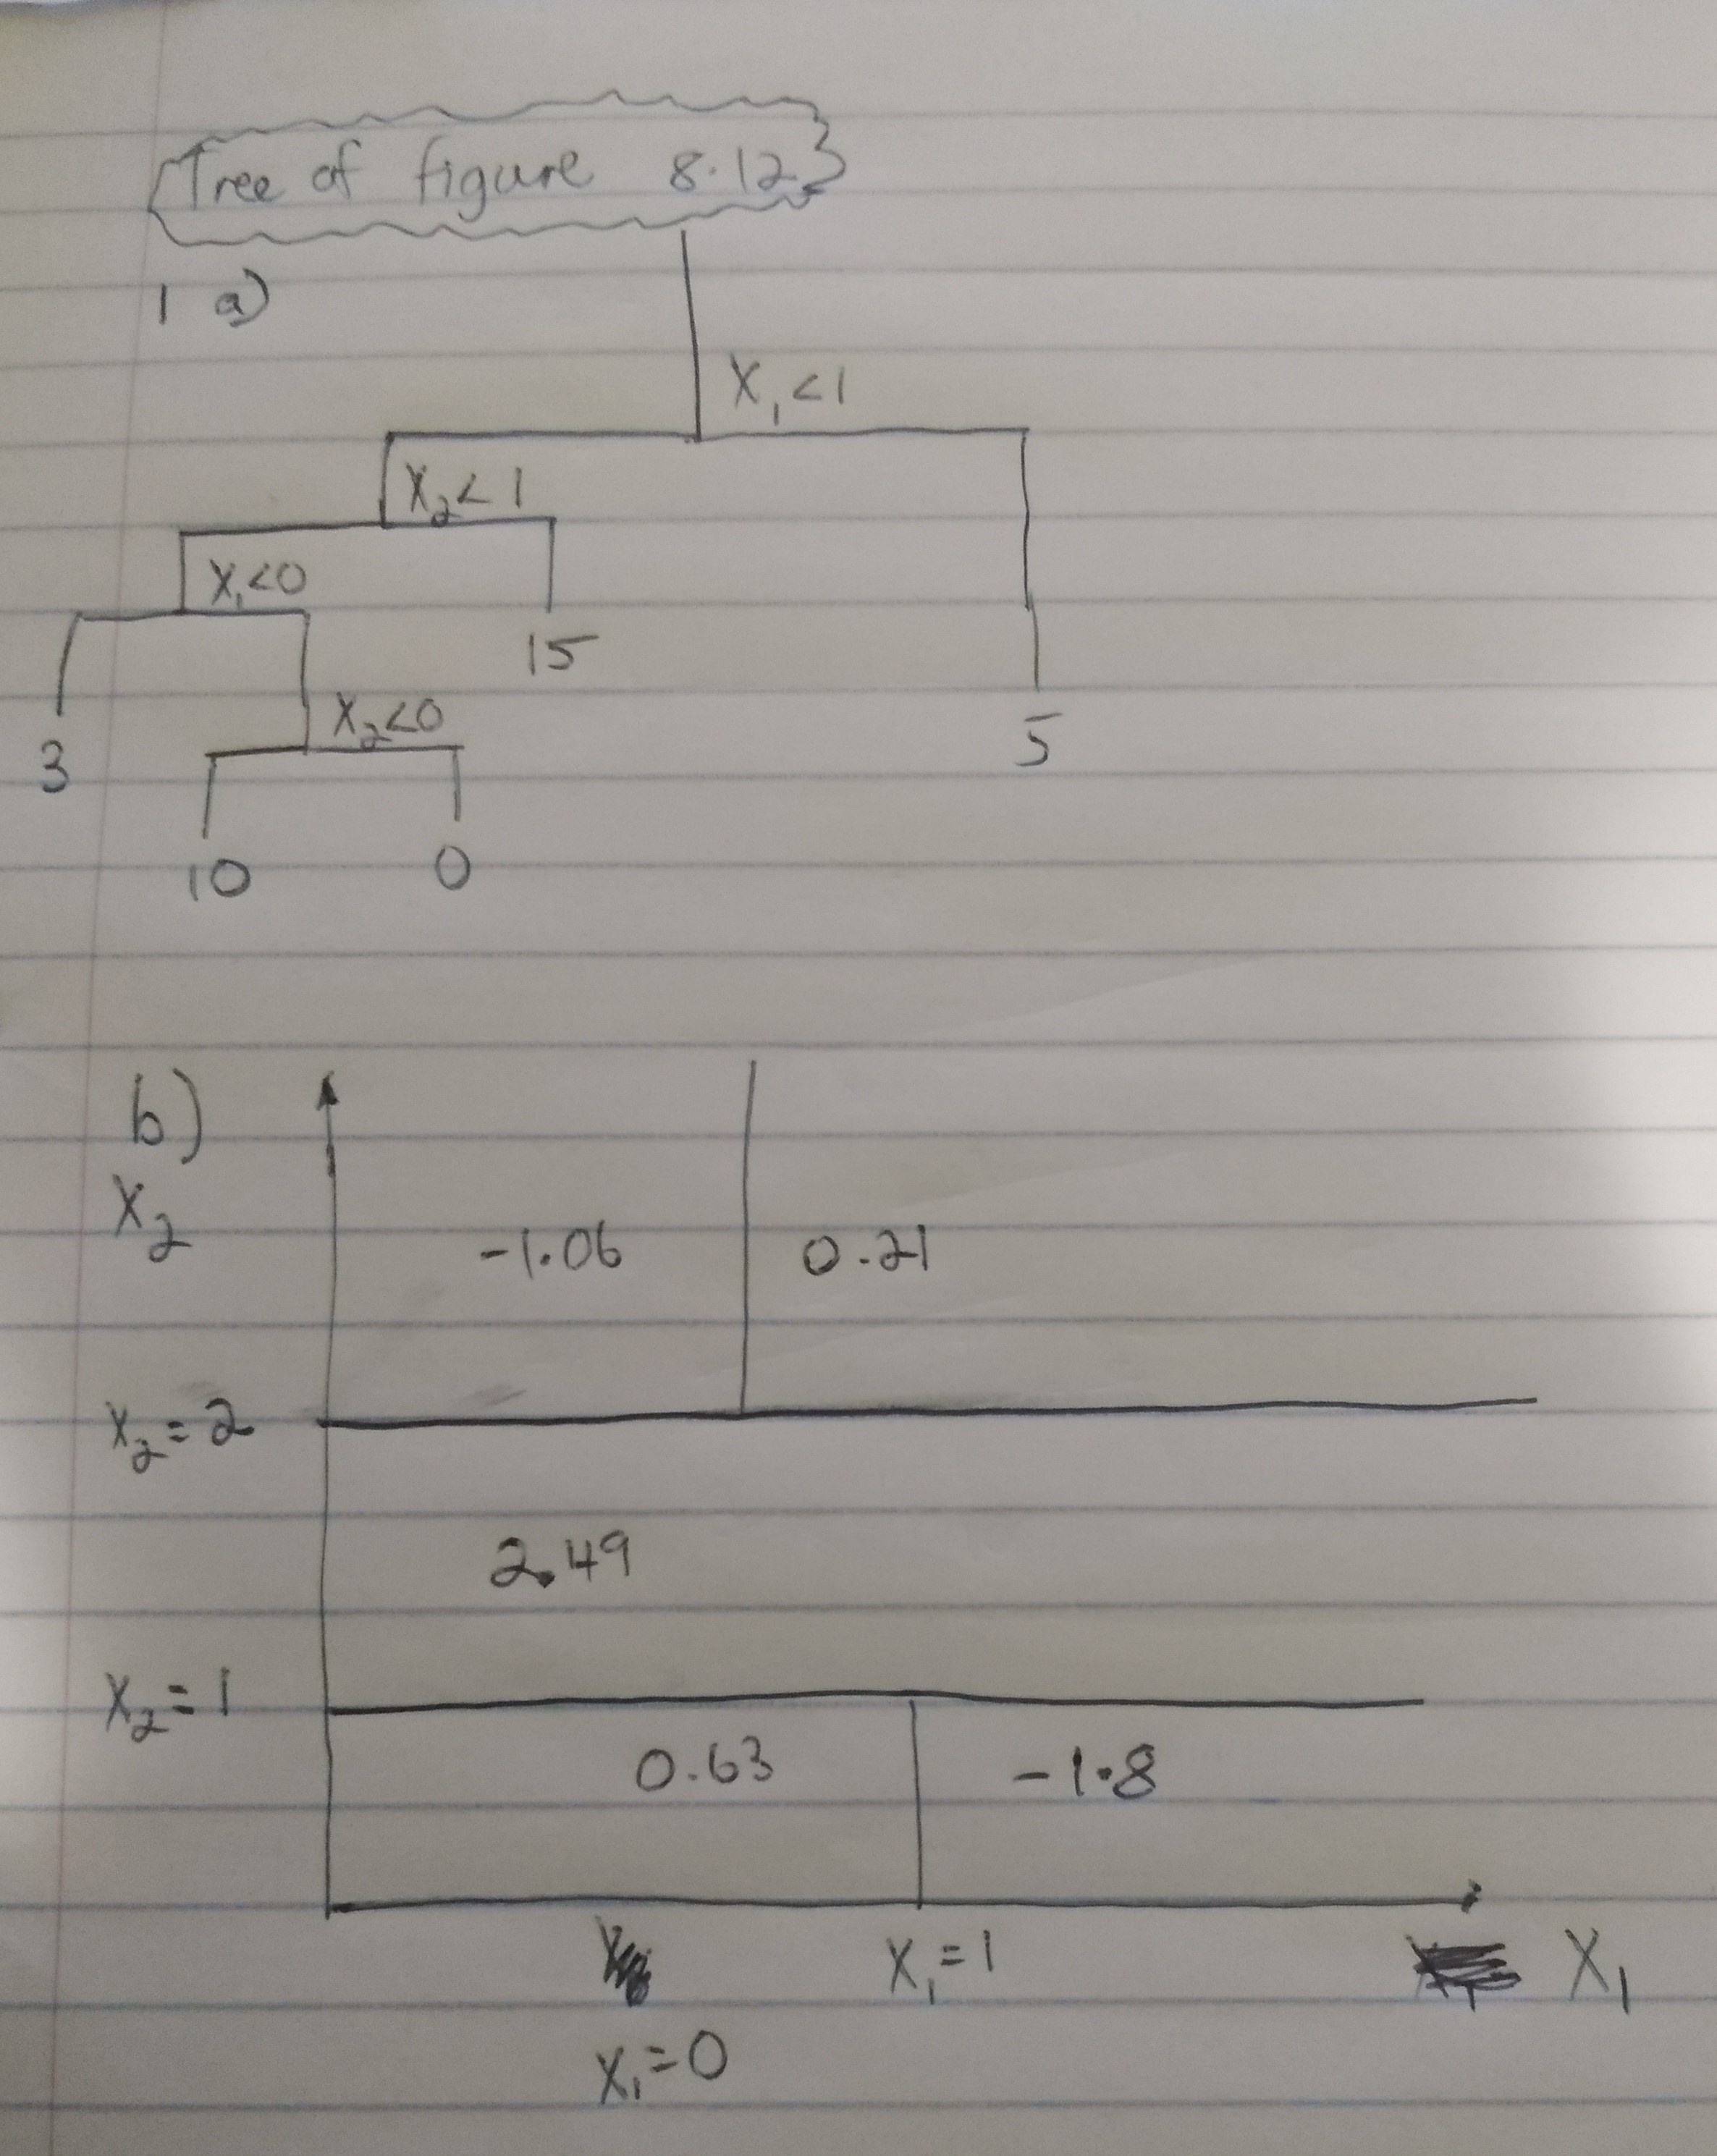 Tree of figure 8.12
1 a)
X₁<1
X₂<1
X₁<0
15
X₂<0
5
3
10 0
b)
X₂
-1.06 0.21
X₂=2
2.49
X₂=1
0.63 -1.8
X₁=1 X₁
X₁=0